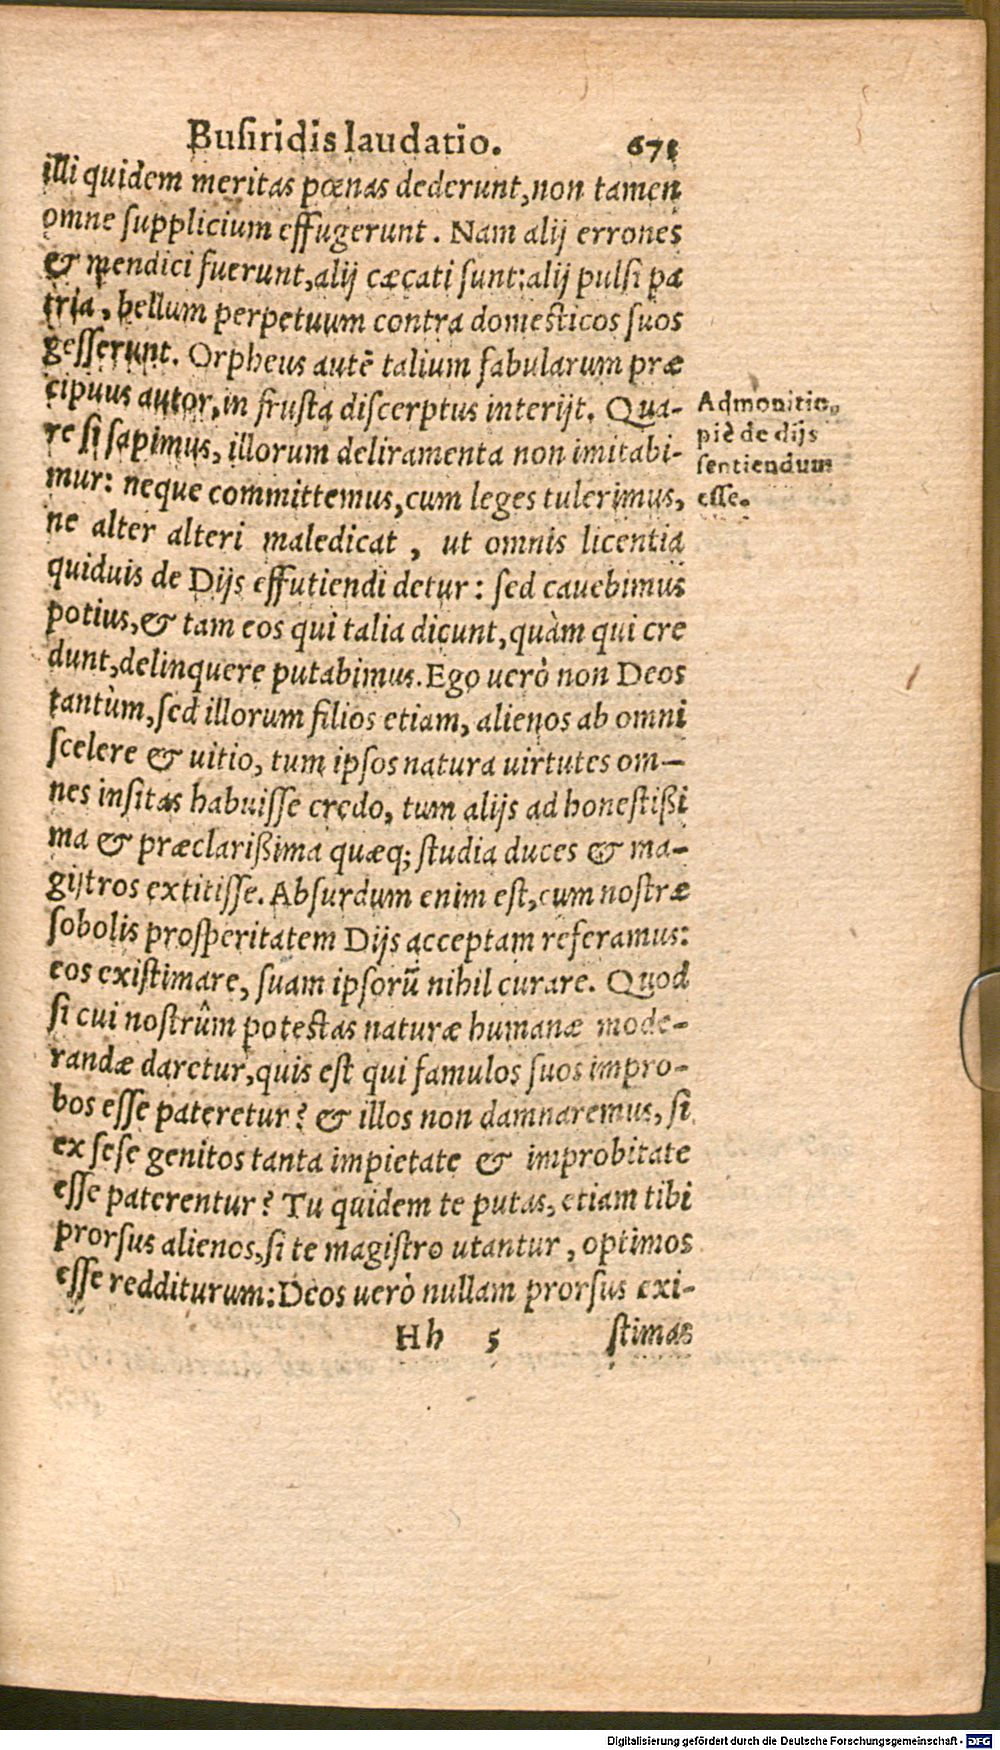 Busiridis laudatio. 671
illi quidem meritas pœnas dederunt, non tamen
omne supplicium effugerunt. Nam alij errones
& mendici fuerunt, alij cæcati sunt: alij pulsi pa
tria, bellum perpetuum contra domesticos suos
gesserunt. Orpheus autē talium fabularum præ
cipuus autor, in frusta discerptus interijt. Qua-
re si sapimus, illorum deliramenta non imitabi-
mur: neque committemus, cum leges tulerimus,
ne alter alteri maledicat, ut omnis licentia
quiduis de Dijs effutiendi detur: sed cauebimus
potius, & tam eos qui talia dicunt, quàm qui cre
dunt, delinquere putabimus. Ego uerò non Deos
tantùm, sed illorum filios etiam, alienos ab omni
scelere & uitio, tum ipsos natura uirtutes om-
nes insitas habuisse credo, tum alijs ad honestißi
ma & præclarißima quæq; studia duces & ma-
gistros extitisse. Absurdum enim est, cum nostræ
sobolis prosperitatem Dijs acceptam referamus:
eos existimare, suam ipsorū nihil curare. Quod
si cui nostrûm potestas naturæ humanæ mode-
randæ daretur, quis est qui famulos suos impro-
bos esse pateretur? & illos non damnaremus, si
ex sese genitos tanta impietate & improbitate
esse paterentur? Tu quidem te putas, etiam tibi
prorsus alienos, si te magistro utantur, optimos
esse redditurum: Deos uerò nullam prorsus exi-
Hh 5 stimas
Admonitio,
piè de dijs
sentiendum
esse.
Digitalisierung gefördert durch die Deutsche Forschungsgemeinschaft - DFG